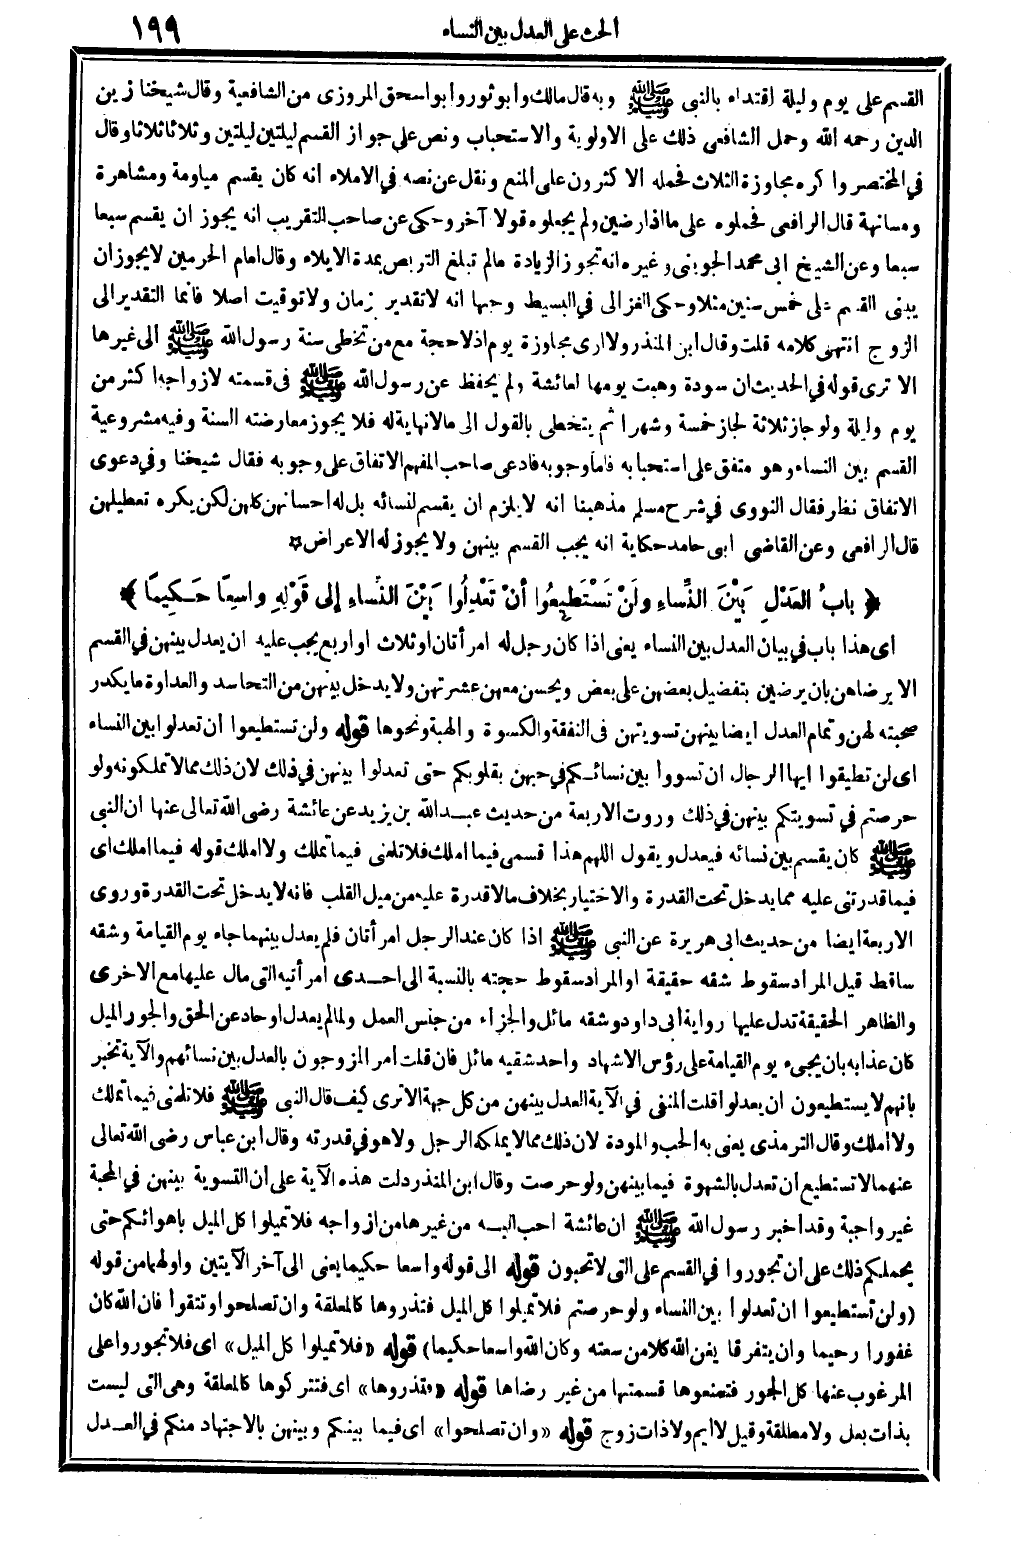 الحث على العدل بين النساء
١٩٩
القسم على يوم وليلة اقتداء بالنبي ﷺ وبه قال مالك وابو ثور وابو اسحق المروزى من الشافعية وقال شيخنا زين
الدين رحمه الله وحمل الشافعى ذلك على الاولوية والاستحباب ونص على جواز القسم ليلتين ليلتين وثلاثا ثلاثا وقال
في المختصر واكره مجاوزة الثلاث فحمله الاكثرون على المنع ونقل عن نصه في الاملاء انه كان يقسم مياومة ومشاهرة
ومسانهة قال الرافعى فحملوه على ما اذا رضين ولم يجعلوه قولا آخر وحكى عن صاحب التقريب انه يجوز ان يقسم سبعا
سبعا وعن الشيخ ابى محمد الجوينى وغيره انه تجوز الزيادة مالم تبلغ التربص بمدة الايلاء وقال امام الحرمين لا يجوز ان
يبنى القسم على خمس سنين مثلا وحكى الغزالى في البسيط وجها انه لا تقدير بزمان ولا توقيت اصلا فانما التقدير الى
الزوج انتهى كلامه قلت وقال ابن المنذر ولا ارى مجاوزة يوم اذ لا حجة مع من تخطى سنة رسول الله ﷺ الى غيرها
الا ترى قوله في الحديث ان سودة وهبت يومها لعائشة ولم يحفظ عن رسول الله ﷺ فى قسمته لازواجه اكثر من
يوم وليلة ولو جاز ثلاثة لجاز خمسة وشهرا ثم يتخطى بالقول الى مالا نهاية له فلا يجوز معارضته السنة وفيه مشروعية
القسم بين النساء وهو متفق على استحبابه فاما وجوبه فادعى صاحب المفهم الاتفاق على وجوبه فقال شيخنا وفي دعوى
الاتفاق نظر فقال النووى في شرح مسلم مذهبنا انه لا يلزم ان يقسم لنسائه بل له اجسانهن كلهن لكن يكره تعطيلهن
قال الرافعى وعن القاضى ابى حامد حكاية انه يجب القسم بينهن ولا يجوز له الاعراض ☆
﴿ بابُ العَدْلِ بَيْنَ النِّساءِ ولَنْ تَسْتَطِيعُوا أنْ تَعْدِلُوا بَيْنَ النِّساءِ إلى قَوْلِهِ واسِعًا حَكِيمًا ﴾
اى هذا باب في بيان العدل بين النساء يعنى اذا كان رجل له امرأتان او ثلاث او اربع يجب عليه ان يعدل بينهن في القسم
الا برضاهن بان يرضين بتفضيل بعضهن على بعض ويحسن معهن عشرتهن ولا يدخل بينهن من التحاسد والعداوة ما يكدر
صحبته لهن وتمام العدل ايضا بينهن تسويتهن فى النفقة والكسوة والهبة ونحوها قوله ولن تستطيعوا أن تعدلوا بين النساء
اى لن تطيقوا ايها الرجال ان تسووا بين نسائكم في حبهن بقلوبكم حتى تعدلوا بينهن في ذلك لان ذلك مما لا تملكونه ولو
حرصتم في تسويتكم بينهن في ذلك وروت الاربعة من حديث عبد الله بن يزيد عن عائشة رضى الله تعالى عنها ان النبى
ﷺ كان يقسم بين نسائه فيعدل ويقول اللهم هذا قسمى فيما املك فلا تلمنى فيما تملك ولا املك قوله فيما املك اى
فيما قدرتنى عليه مما يدخل تحت القدرة والاختيار بخلاف ما لا قدرة عليه من ميل القلب فانه لا يدخل تحت القدرة وروى
الاربعة ايضا من حديث ابى هريرة عن النبى ﷺ اذا كان عند الرجل امرأتان فلم يعدل بينهما جاء يوم القيامة وشقه
ساقط قيل المراد سقوط شقه حقيقة او المراد سقوط حجته بالنسبة الى احدى امرأتيه التى مال عليها مع الاخرى
والظاهر الحقيقة تدل عليها رواية ابى داود وشقه مائل والجزاء من جنس العمل ولما لم يعدل او حاد عن الحق والجور الميل
كان عذابه بان يجىء يوم القيامة على رؤس الاشهاد واحد شقيه مائل فان قلت امر المزوجون بالعدل بين نسائهم والآية تخبر
بانهم لا يستطيعون ان يعدلوا قلت المنفى في الآية العدل بينهن من كل جهة الا ترى كيف قال النبى ﷺ فلا تلمنى فيما تملك
ولا أملك وقال الترمذى يعنى به الحب والمودة لان ذلك مما لا يملكه الرجل ولا هو في قدرته وقال ابن عباس رضى الله تعالى
عنهما لا تستطيع أن تعدل بالشهوة فيما بينهن ولو حرصت وقال ابن المنذر دلت هذه الآية على أن التسوية بينهن في المحبة
غير واجبة وقد اخبر رسول الله ﷺ ان عائشة احب اليه من غيرها من ازواجه فلا تميلوا كل الميل باهوائكم حتى
يحملكم ذلك على ان تجوروا في القسم على التى لا تحبون قوله الى قوله واسعا حكيما يعنى الى آخر الآيتين واولهما من قوله
(ولن تستطيعوا ان تعدلوا بين النساء ولو حرصتم فلا تميلوا كل الميل فتذروها كالمعلقة وان تصلحوا وتتقوا فان الله كان
غفورا رحيما وان يتفرقا يغن الله كلا من سعته وكان الله واسعا حكيما) قوله «فلا تميلوا كل الميل» اى فلا تجوروا على
المرغوب عنها كل الجور فتمنعوها قسمتها من غير رضاها قوله «فتذروها» اى فتتركوها كالمعلقة وهى التى ليست
بذات بعل ولا مطلقة وقيل لا ايم ولا ذات زوج قوله «وان تصلحوا» اى فيما بينكم وبينهن بالاجتهاد منكم في العدل